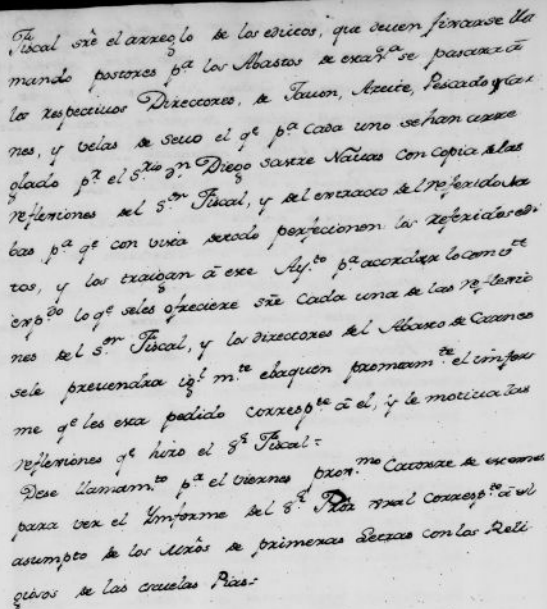 Fiscal sre el arreglo de los edictos, que deven fixarse lla
mando postores pa los Abastos de esta Va se pasara á
los respectivos Directores, de Javon, Azeite, Pescado y Car
nes, y velas de sevo el qe pa cada uno se han arre
glado pr el Srio Dn Diego Sastre Navas con copia de las
reflexiones del Sor Fiscal, y del extracto del referido
bas pa qe con vista de todo perfecionen los referidos edi
tos, y los traigan á este Ayto pa acordar lo combte
en lo qe seles ofreciere sre cada una de las reflexio
nes del Sor Fiscal, y los directores del Abasto de Carnes
sele prevendra igl mte ebaquen promtamte el imfor
me qe les esta pedido correspte á el, y le motiva las
reflexiones qe hizo el Sr Fiscal=
Dese llamamto pa el viernes proxmo Catorze de este mes
para ver el Ymforme del Sr Pror gral correspte á el
asumpto de los Mros de primeras Letras con los Reli
giosos de las escuelas Pias=